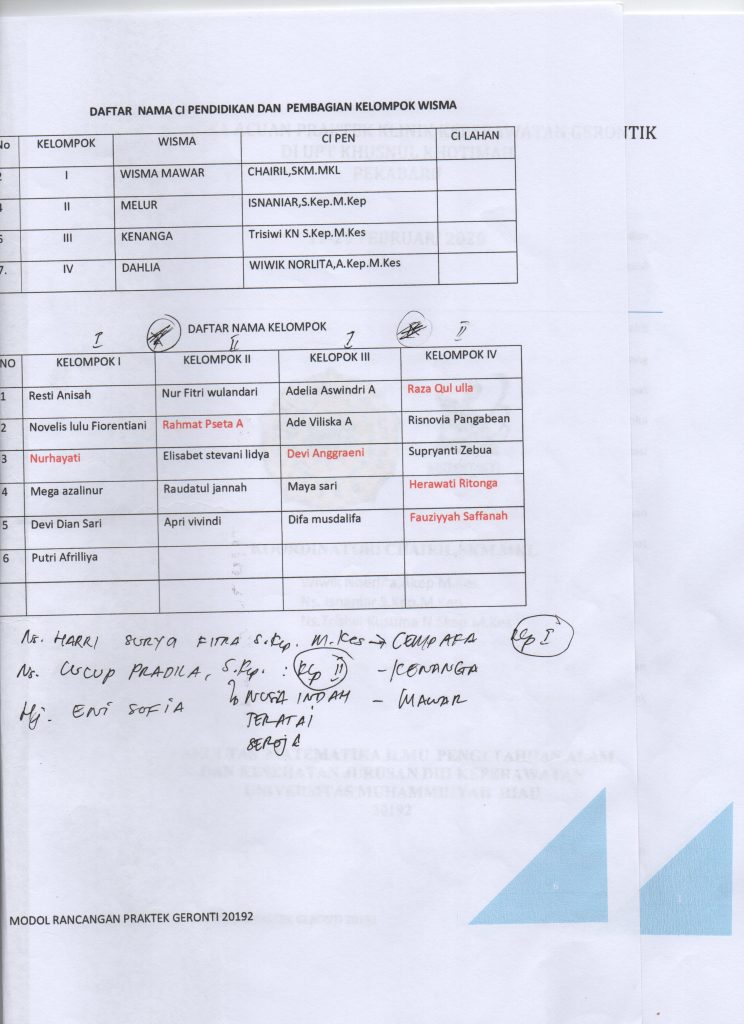 DAFTAR NAMA CI PENDIDIKAN DAN PEMBAGIAN KELOMPOK WISMA
No KELOMPOK WISMA CI PEN CI LAHAN
I WISMA MAWAR CHAIRIL,SKM.MKL
II MELUR ISNANIAR,S.Kep.M.Kep
III KENANGA Trisiwi KN S.Kep.M.Kes
7. IV DAHLIA WIWIK NORLITA,A.Kep.M.Kes
NTIK
DAFTAR NAMA KELOMPOK
I II I II
NO KELOMPOK I KELOMPOK II KELOPOK III KELOMPOK IV
1 Resti Anisah Nur Fitri wulandari Adelia Aswindri A Raza Qul ulla
2 Novelis lulu Fiorentiani Rahmat Pseta A Ade Viliska A Risnovia Pangabean
3 Nurhayati Elisabet stevani lidya Devi Anggraeni Supryanti Zebua
4 Mega azalinur Raudatul jannah Maya sari Herawati Ritonga
5 Devi Dian Sari Apri vivindi Difa musdalifa Fauziyyah Saffanah
6 Putri Afrilliya
Ns. HARRI SURYA FITRA S.Kp. M.Kes → CEMPAFA Klp I
Ns. CUCUP PRADILA, S.Kp. : Klp II - KENANGA
Hj. ENI SOFIA NUSA INDAH - MAWAR
TERATAI
SEROJA
MODOL RANCANGAN PRAKTEK GERONTI 20192
6
1